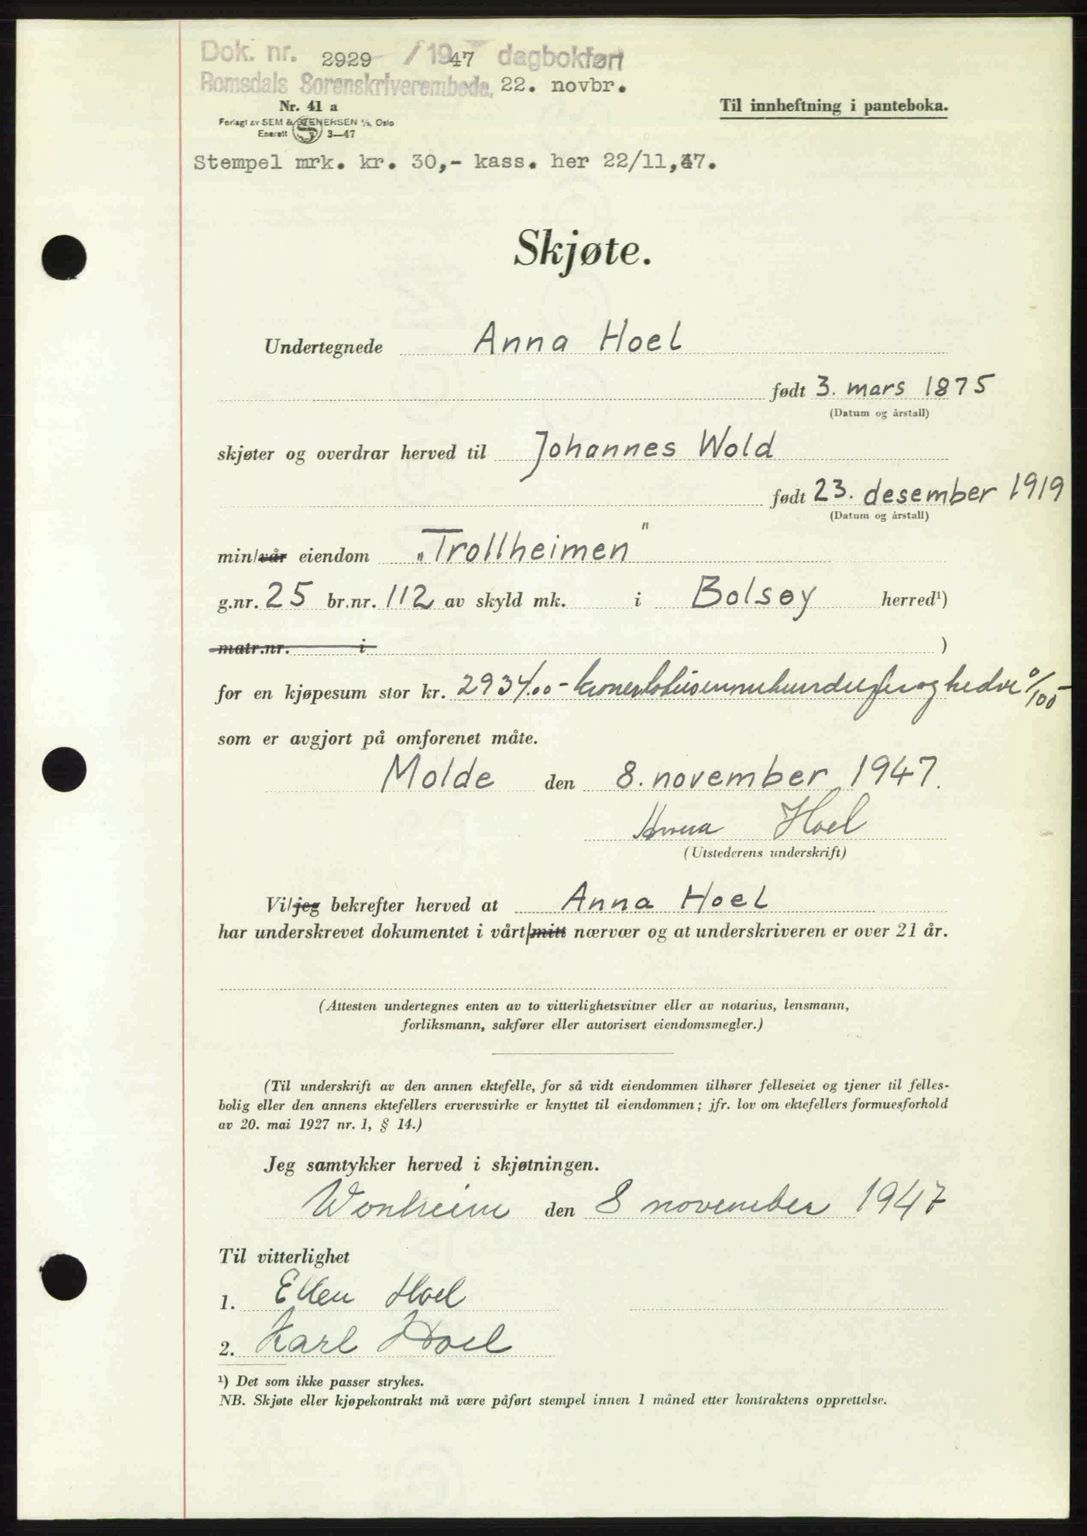 Dok. nr. 2929 / 1947 dagbokført
Romsdals Sorenskriverembede, 22. novbr.
Nr. 41 a
Forlagt av SEM & STENERSEN A/S, Oslo
Enerett 3—47
Til innheftning i panteboka.
Stempel mrk. kr. 30,- kass. her 22/11,47.
Skjøte.
Undertegnede Anna Hoel
født 3. mars 1875
(Datum og årstall)
skjøter og overdrar herved til Johannes Wold
født 23. desember 1919
(Datum og årstall)
min/vår eiendom „Trollheimen"
g.nr. 25 br.nr. 112 av skyld mk. i Bolsøy herred¹)
matr.nr. i )
for en kjøpesum stor kr. 2934.00 -
som er avgjort på omforenet måte.
Molde den 8. november 1947.
Anna Hoel
(Utstederens underskrift)
Vi/jeg bekrefter herved at Anna Hoel
har underskrevet dokumentet i vårt/mitt nærvær og at underskriveren er over 21 år.
(Attesten undertegnes enten av to vitterlighetsvitner eller av notarius, lensmann,
forliksmann, sakfører eller autorisert eiendomsmegler.)
(Til underskrift av den annen ektefelle, for så vidt eiendommen tilhører felleseiet og tjener til felles-
bolig eller den annens ektefellers ervervsvirke er knyttet til eiendommen; jfr. lov om ektefellers formuesforhold
av 20. mai 1927 nr. 1, § 14.)
Jeg samtykker herved i skjøtningen.
den 8 november 1947
Til vitterlighet
1. Ellen Hoel
2. Karl Hoel
¹) Det som ikke passer strykes.
NB. Skjøte eller kjøpekontrakt må være påført stempel innen 1 måned etter kontraktens opprettelse.